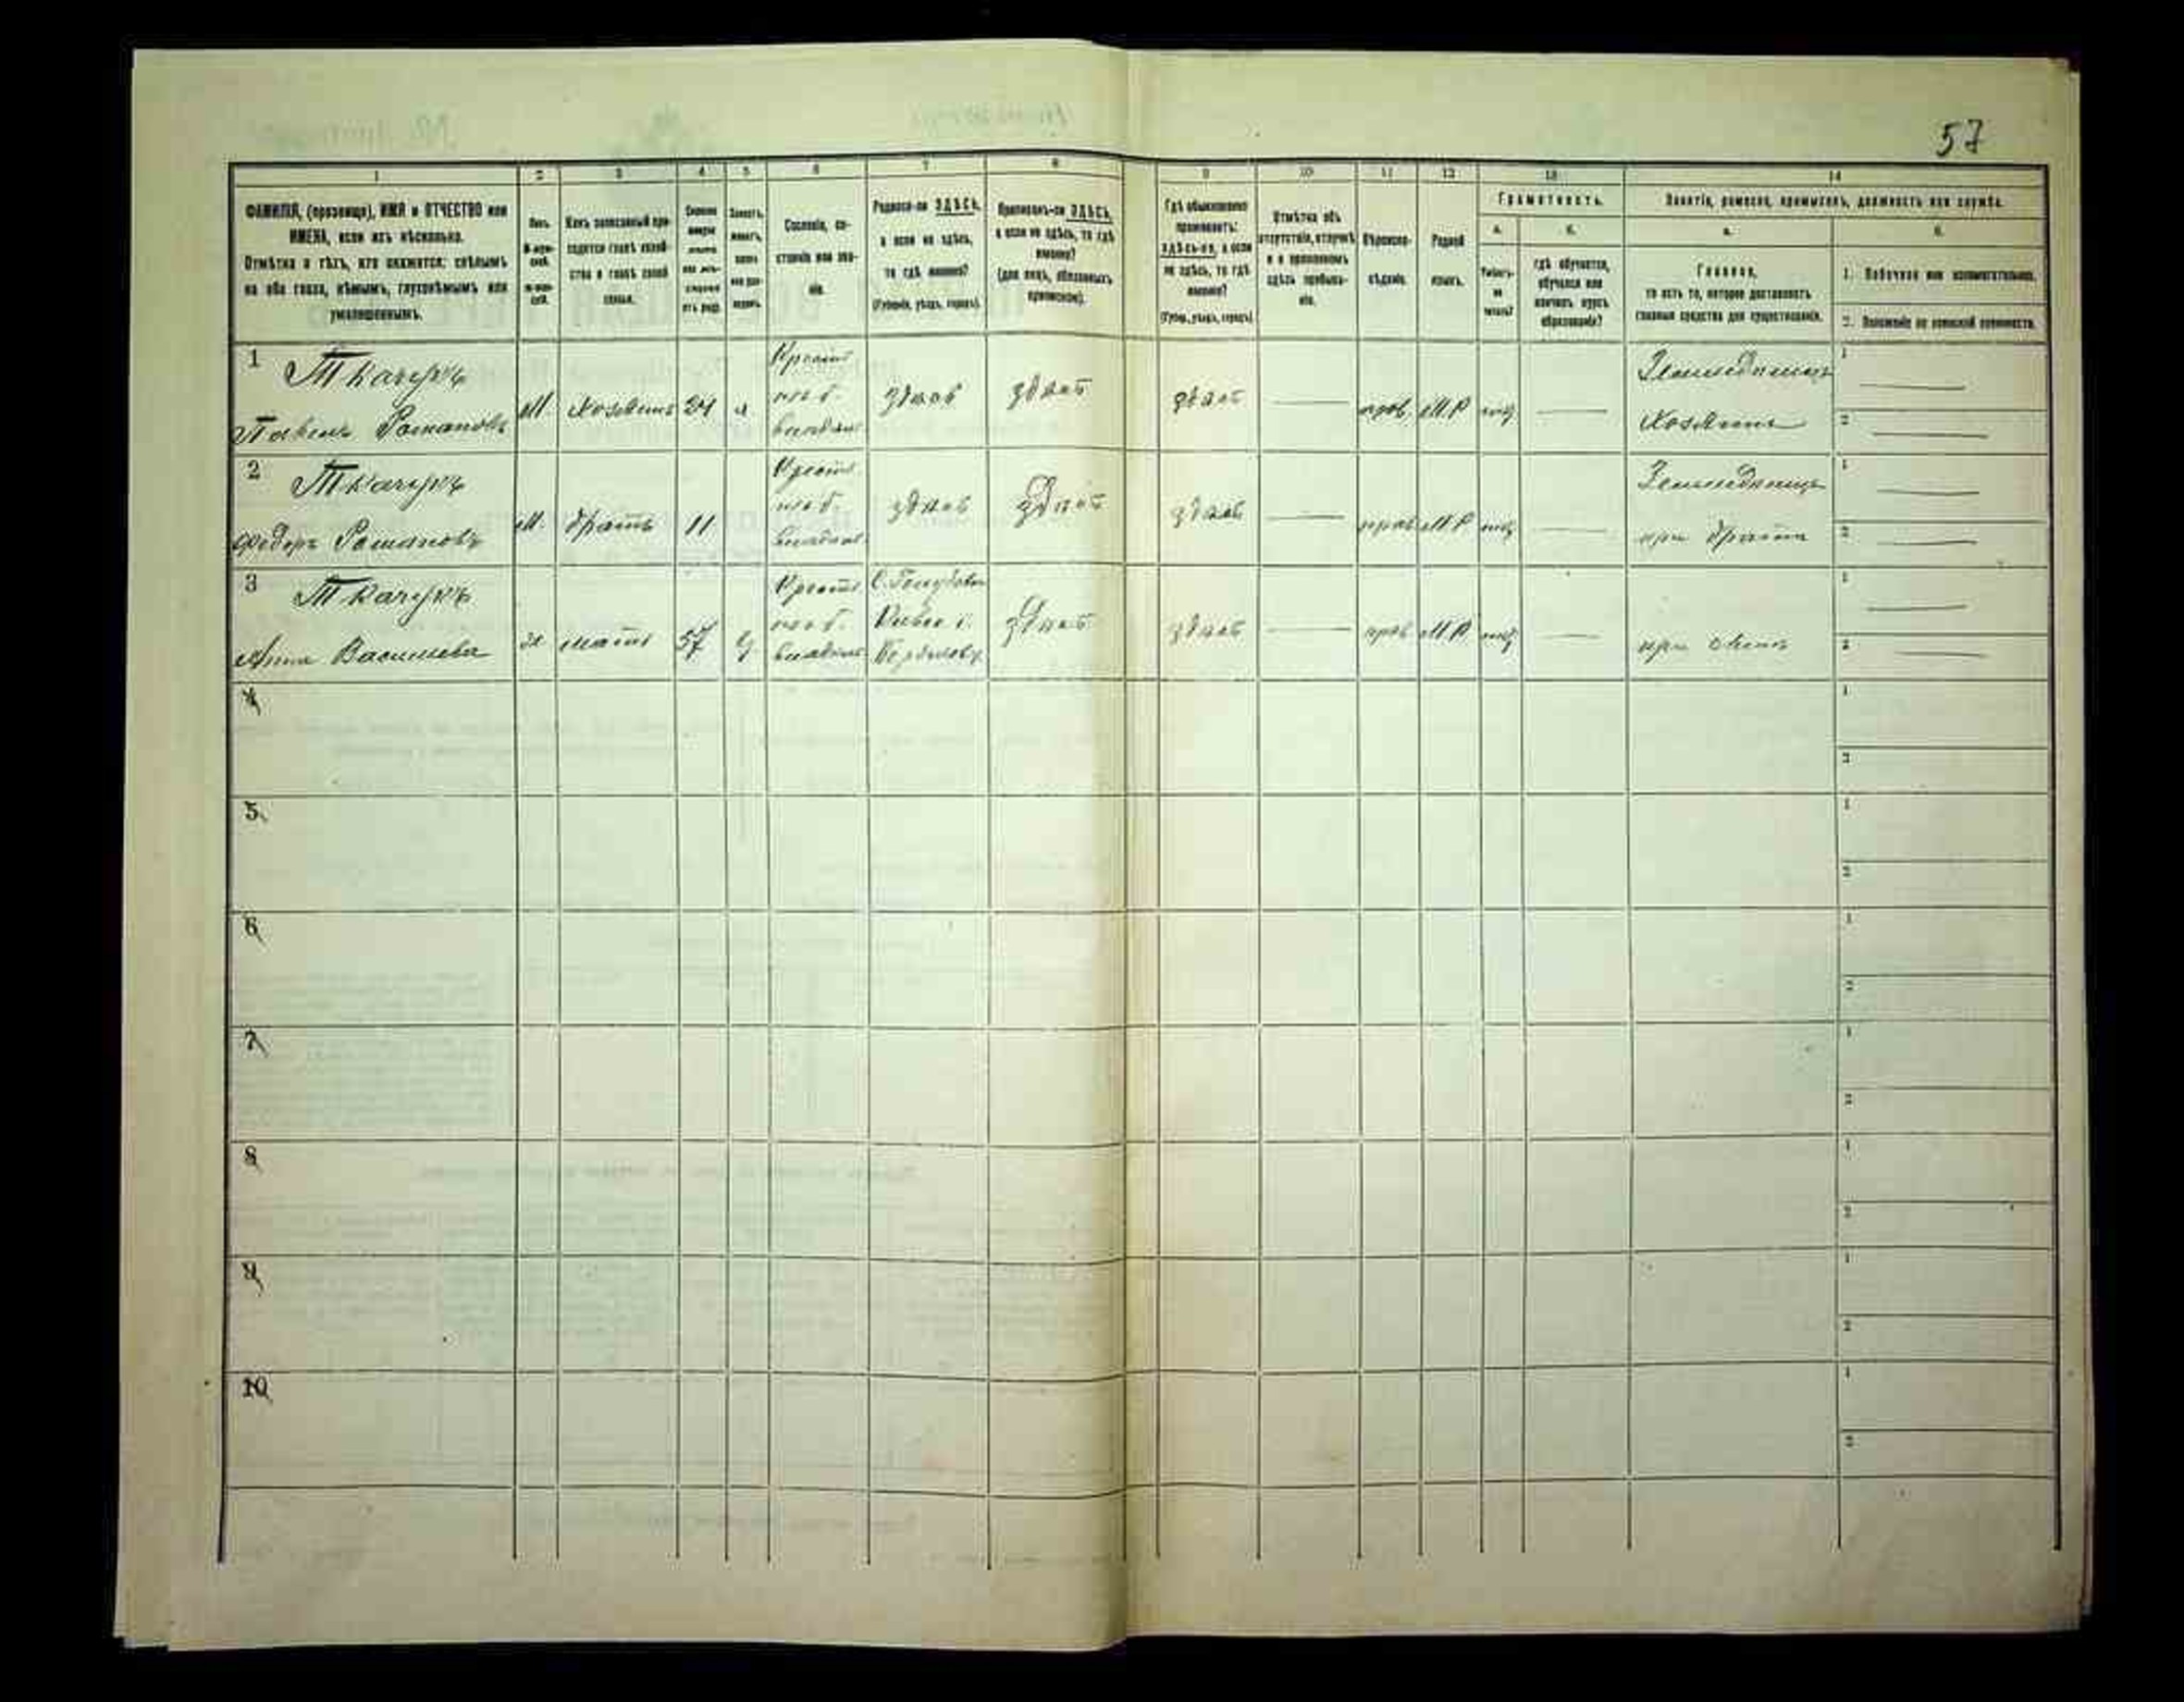 57
1 2 3 4 5 6 7 8 9 10 11 12 13 14
ФАМИЛІЯ, (прозвище), ИМЯ и ОТЧЕСТВО или
ИМЕНА, если ихъ нѣсколько.
Отмѣтка о тѣхъ, кто окажется: слѣпымъ
на оба глаза, нѣмымъ, глухонѣмымъ или
умалишеннымъ.
Полъ.
Какъ записанный при-
ходится главѣ хозяй-
ства и главѣ своей
семьи.
Сословіе, со-
стояніе или зва-
ніе.
Родился-ли ЗДѢСЬ,
а если не здѣсь,
то гдѣ именно?
(Губернія, уѣздъ, городъ).
Приписанъ-ли ЗДѢСЬ,
а если не здѣсь, то гдѣ
именно?
(для лицъ, обязанныхъ
припискою).
Гдѣ обыкновенно
проживаетъ:
ЗДѢСЬ-ли, а если
не здѣсь, то гдѣ
именно?
(Губер., уѣздъ, городъ)
Отмѣтка объ
отсутствіи, отлучкѣ
и о временномъ
здѣсь пребыва-
ніи.
Вѣроиспо-
вѣданіе.
Родной
языкъ.
Грамотность.
а. б.
Умѣетъ-
ли
читать?
гдѣ обучается,
обучался или
кончилъ курсъ
образованія?
Занятіе, ремесло, промыселъ, должность или служба.
а. б.
Главное,
то есть то, которое доставляетъ
главныя средства для существованія.
1. Побочное или вспомогательное.
2. Положеніе по воинской повинности.
1 Ткачукъ
Павелъ Романовъ
М. Хозяинъ 24
Крест.
изъ б.
владѣл.
здѣсь здѣсь здѣсь прав. М.Р
Земледѣлецъ
Хозяинъ
1
2
2 Ткачукъ
Федоръ Романовъ
М. братъ 11
Крест.
изъ б.
владѣл.
здѣсь здѣсь здѣсь прав М.Р
Земледѣлецъ
при братѣ
1
2
3 Ткачукъ
Анна Васильева
ж мать 57
Крест.
изъ б.
владѣл.
здѣсь здѣсь прав М.Р
при сынѣ
1
2
4 1
2
5 1
2
6 1
2
7 1
2
8 1
2
9 1
2
10 1
2